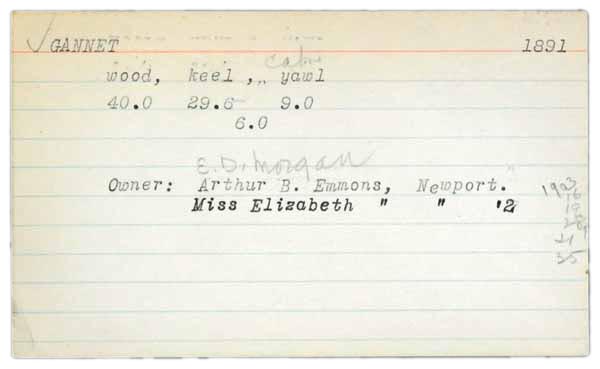 GANNET 1891
cabin
wood, keel, „ yawl
40.0 29.6 9.0
6.0
E.D. Morgan
Owner: Arthur B. Emmons, Newport.
Miss Elizabeth " " '2
1903
16
19
28
35